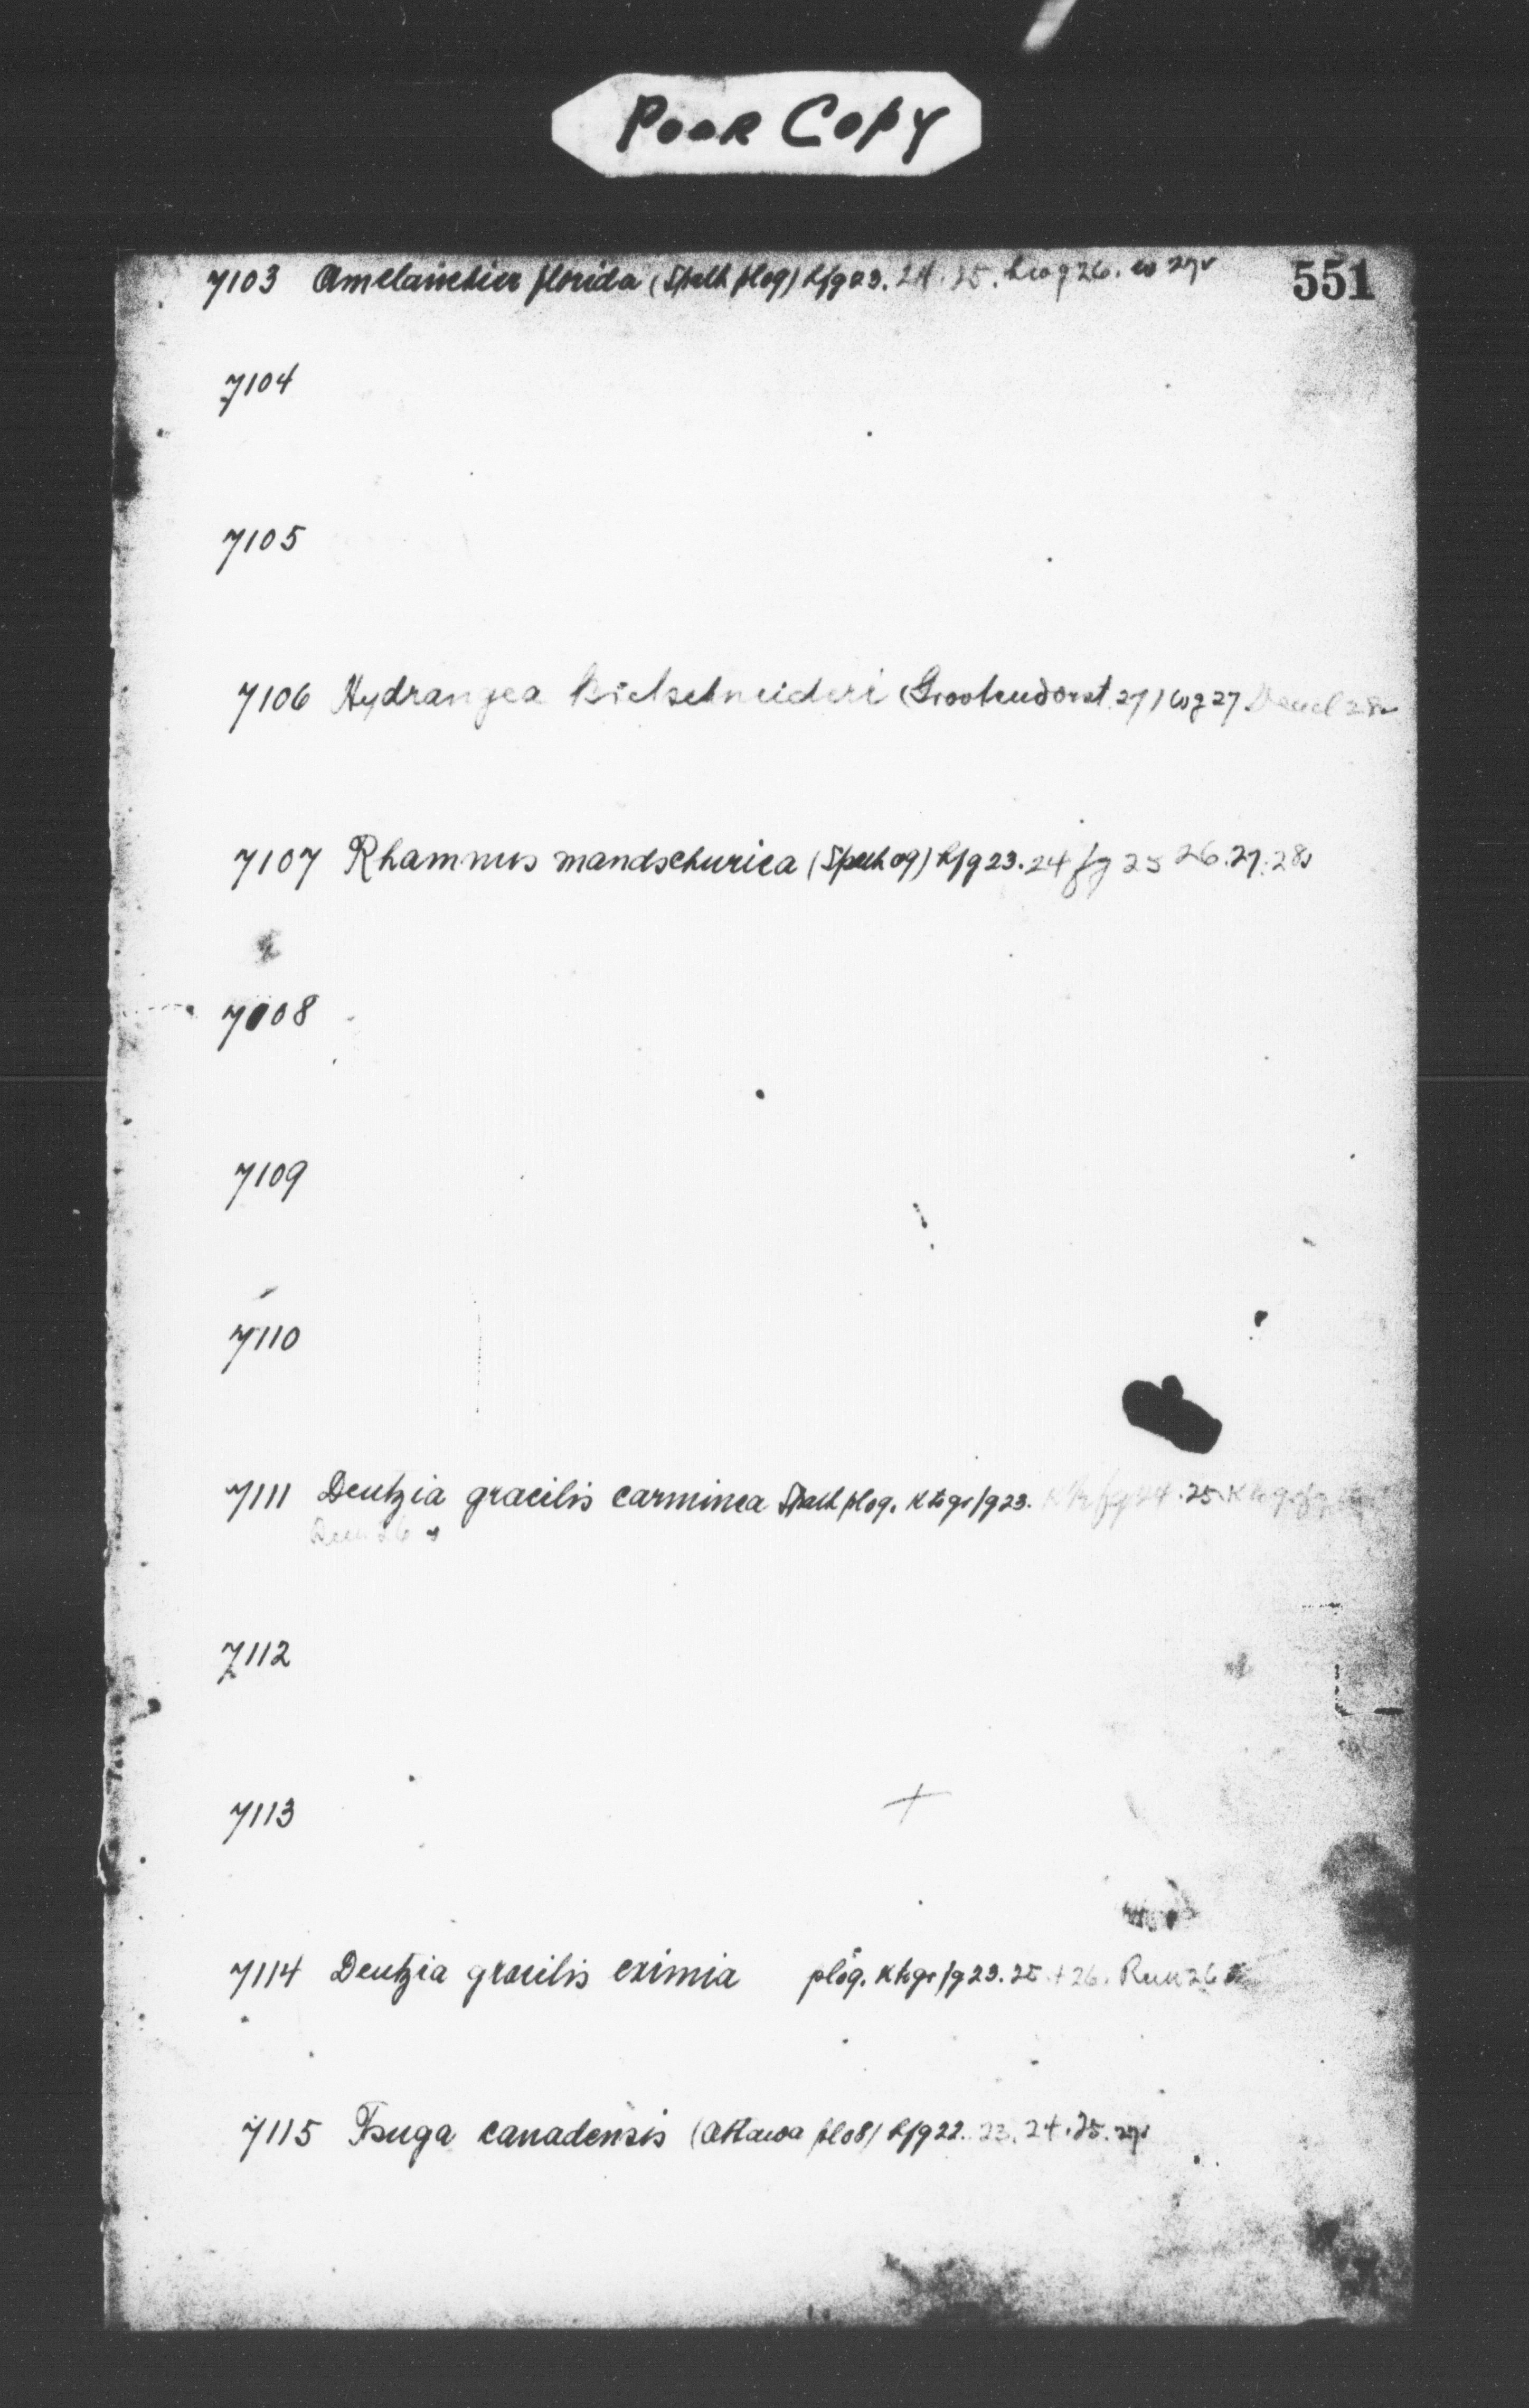 POOR COPY
551
7103 Amelanchier florida (Späth pl09) hfg23. 24. 25. 26. 27v
7104
7105
7106 Hydrangea Bretschneideri (Grootendorst 27) wg27 28
7107 Rhamnus mandschurica (Späth 09) hfg23. 24 fg 25 26. 27. 28v
7108
7109
7110
7111 Deutzia gracilis carminea Späth pl09. 25.
7112
7113
7114 Deutzia gracilis eximia pl09. 25 + 26.
7115 Tsuga canadensis (Ottawa pl08) hfg22. 23. 24. 25.